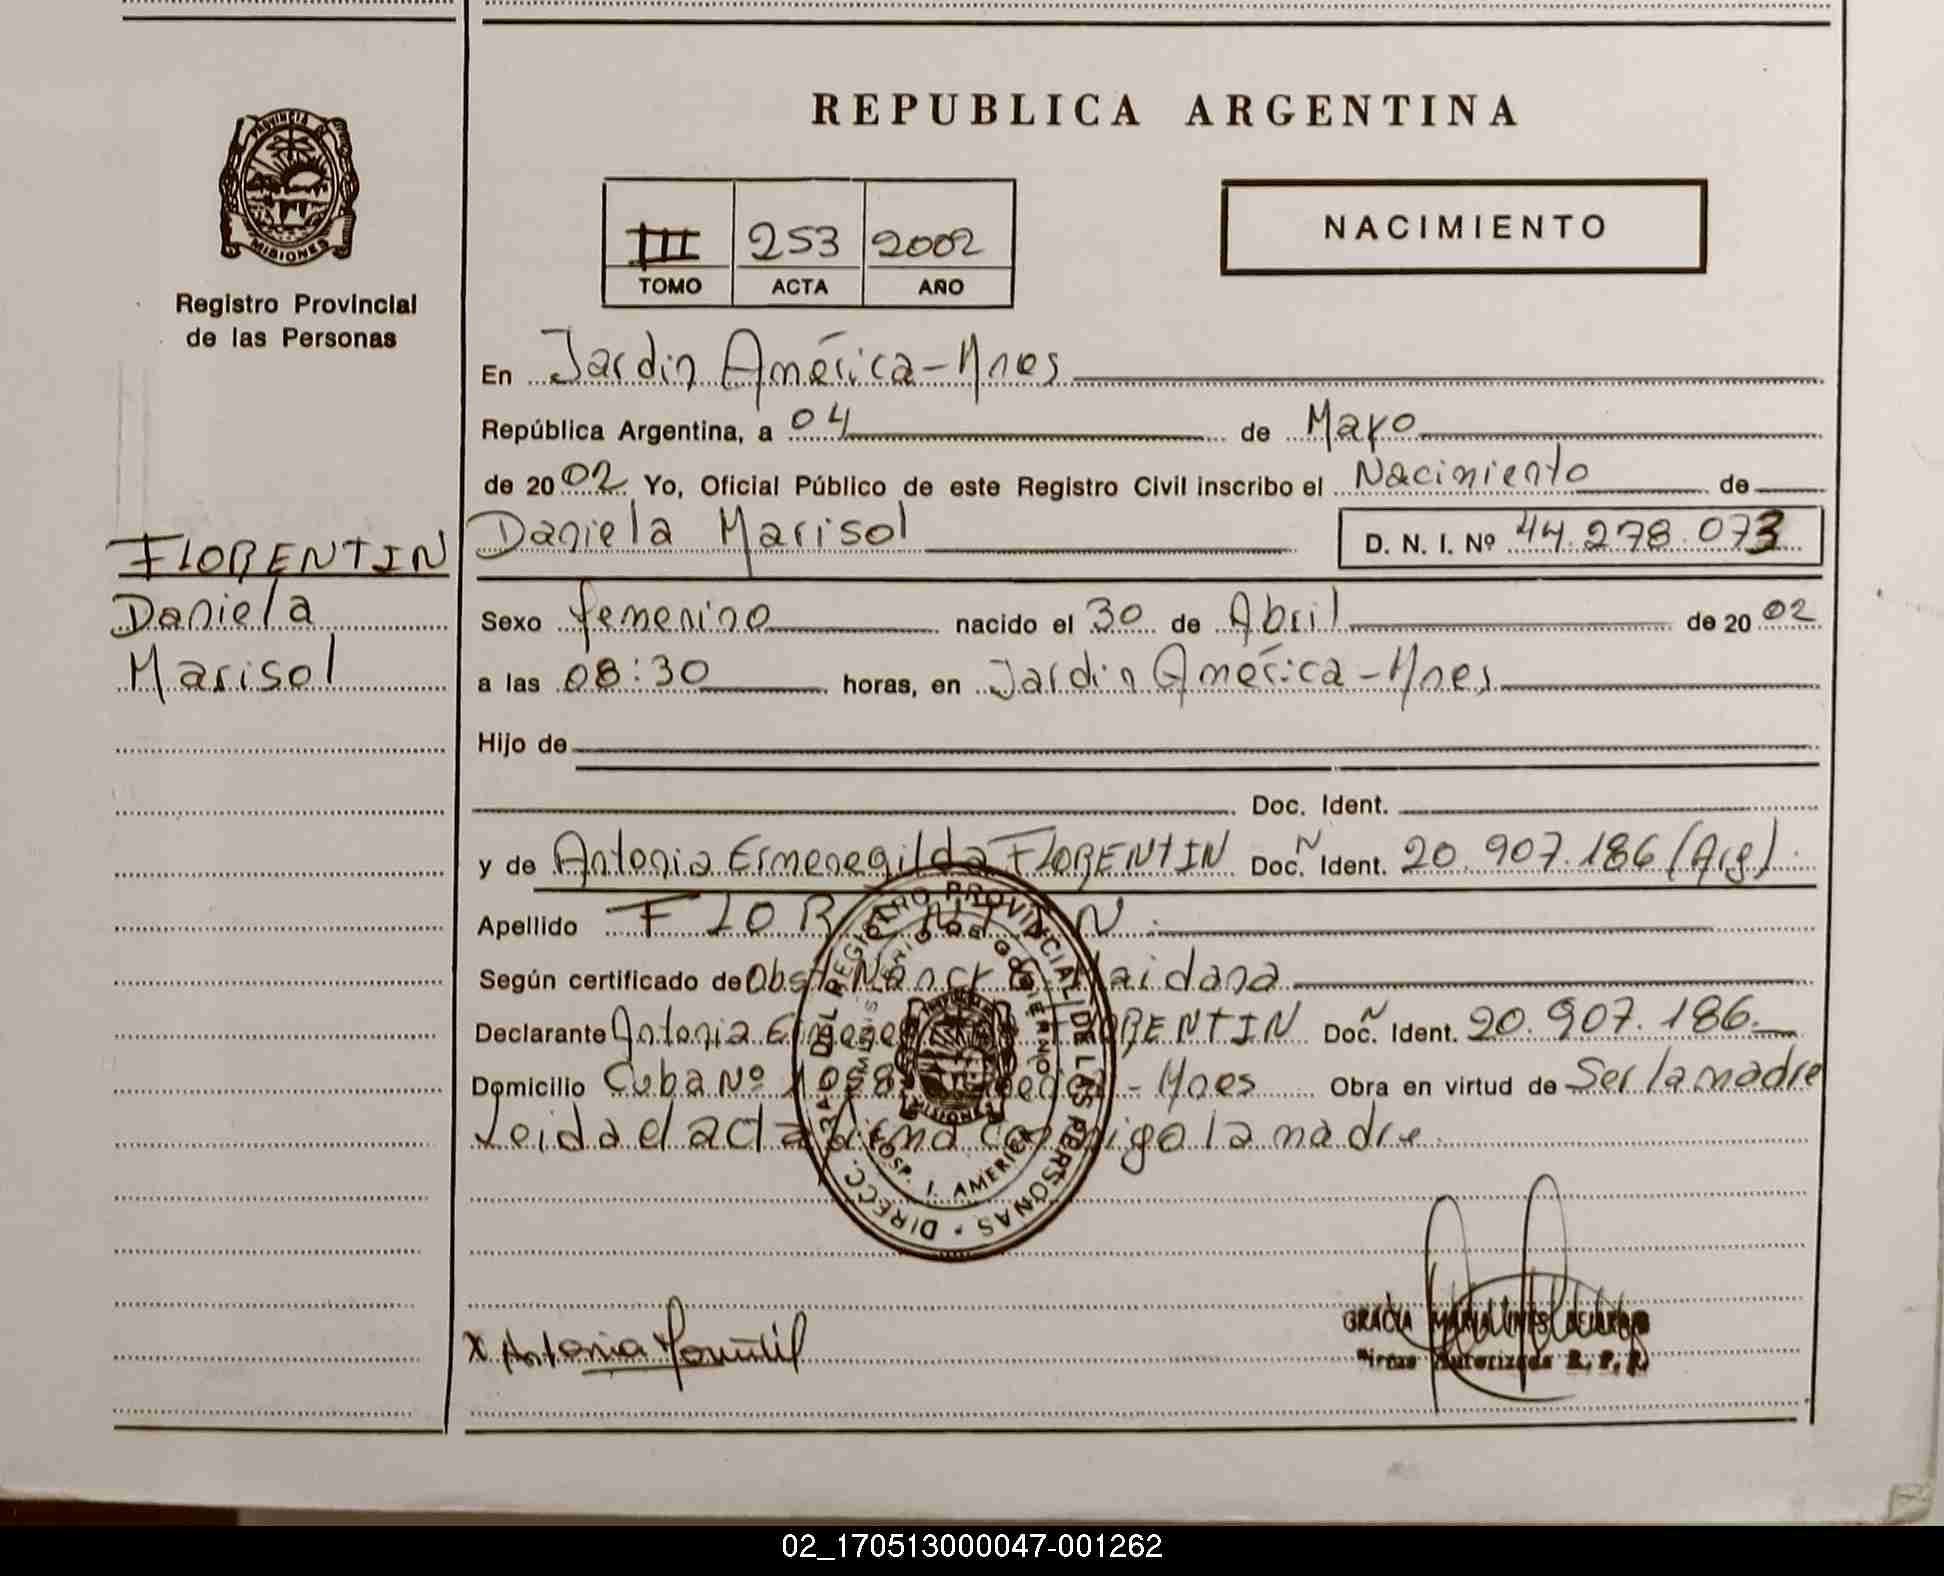 REPUBLICA ARGENTINA
PROVINCIA DE
MISIONES
Registro Provincial
de las Personas
III 253 2002
TOMO ACTA AÑO
NACIMIENTO
En Jardin América-Mnes
República Argentina, a 04 de Mayo
de 2002 Yo, Oficial Público de este Registro Civil inscribo el Nacimiento de
FLORENTIN
Daniela
Marisol
Daniela Marisol D. N. I. Nº 44.278.073
Sexo femenino nacido el 30 de Abril de 2002
a las 08:30 horas, en Jardin América-Mnes
Hijo de
Doc. Ident.
y de Antonia Ermenegilda FLORENTIN Doc. N Ident. 20.907.186 (Arg).
Apellido FLORENTIN.
Según certificado de Obst. Nancy Maidana
Declarante Antonia FLORENTIN Doc. N Ident. 20.907.186.
Domicilio Cuba Nº - Mnes Obra en virtud de Ser la madre
Leida el acta firma conmigo la madre.
DIRECC. GRAL DEL REGISTRO PROVINCIAL DE LAS PERSONAS
MINISTERIO DE GOBIERNO
HOSP. J. AMERICA
MISIONES
x Antonia
GRACIA MARIA INES
Autorizada R. P. P.
02_170513000047-001262